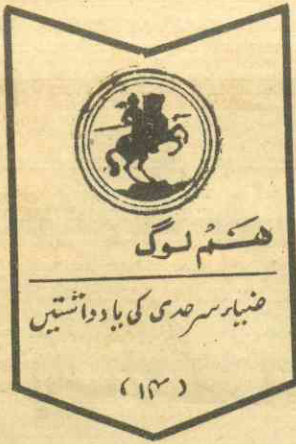 هَم لوگ
ضیاء سرحدی کی یادداشتیں
(۱۴)